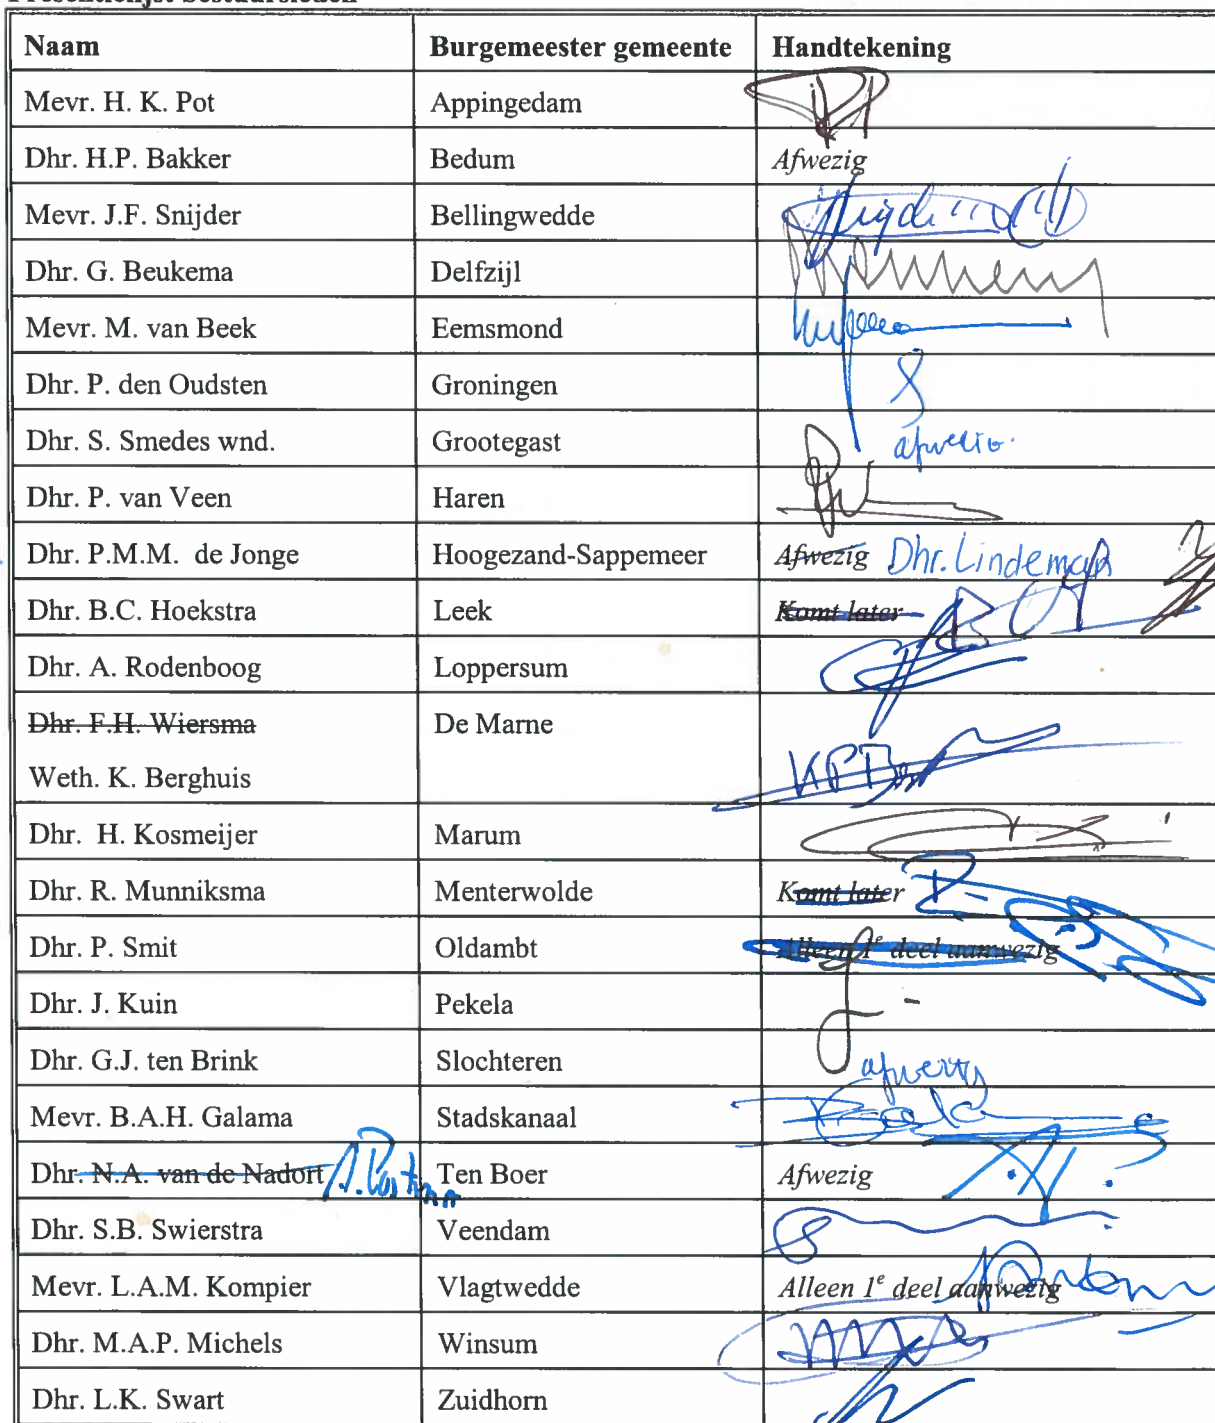 Presentielijst bestuursleden
Naam Burgemeester gemeente Handtekening
Mevr. H. K. Pot Appingedam
Dhr. H.P. Bakker Bedum Afwezig
Mevr. J.F. Snijder Bellingwedde
Dhr. G. Beukema Delfzijl
Mevr. M. van Beek Eemsmond
Dhr. P. den Oudsten Groningen
Dhr. S. Smedes wnd. Grootegast afwezig
Dhr. P. van Veen Haren
Dhr. P.M.M. de Jonge Hoogezand-Sappemeer Afwezig Dhr. Lindeman
Dhr. B.C. Hoekstra Leek Komt later
Dhr. A. Rodenboog Loppersum
Dhr. F.H. Wiersma De Marne
Weth. K. Berghuis
Dhr. H. Kosmeijer Marum
Dhr. R. Munniksma Menterwolde Komt later
Dhr. P. Smit Oldambt Alleen 1e deel aanwezig
Dhr. J. Kuin Pekela
Dhr. G.J. ten Brink Slochteren afwezig
Mevr. B.A.H. Galama Stadskanaal
Dhr. N.A. van de Nadort Ten Boer Afwezig
Dhr. S.B. Swierstra Veendam
Mevr. L.A.M. Kompier Vlagtwedde Alleen 1e deel aanwezig
Dhr. M.A.P. Michels Winsum
Dhr. L.K. Swart Zuidhorn